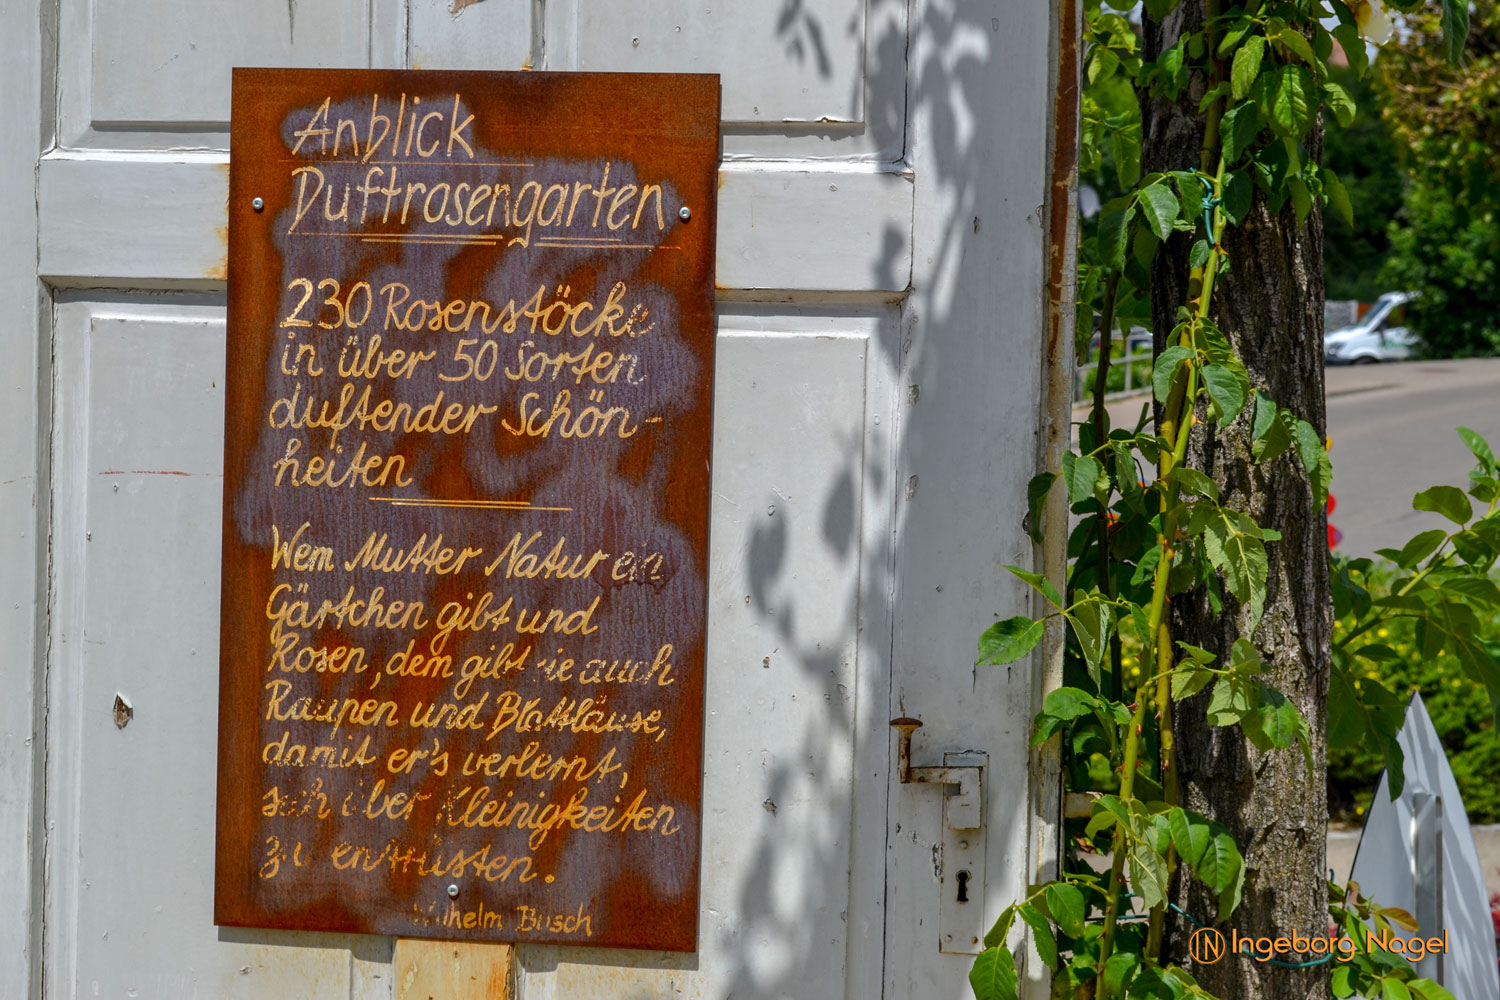 Anblick
Duftrosengarten
230 Rosenstöcke
in über 50 Sorten
duftender Schön-
heiten
Wem Mutter Natur ein
Gärtchen gibt und
Rosen, dem gibt sie auch
Raupen und Blattläuse,
damit er's verlernt,
sich über Kleinigkeiten
zu entrüsten.
Wilhelm Busch
IN Ingeborg Nagel